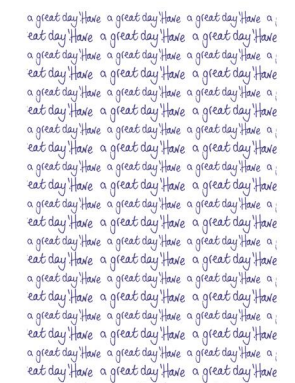 a great day 'Have a great day 'Have a great day 'Have a
eat day 'Have a great day 'Have a great day 'Have
a great day 'Have a great day 'Have a great day 'Have a
eat day 'Have a great day 'Have a great day 'Have
a great day 'Have a great day 'Have a great day 'Have a
eat day 'Have a great day 'Have a great day 'Have
a great day 'Have a great day 'Have a great day 'Have a
eat day 'Have a great day 'Have a great day 'Have
a great day 'Have a great day 'Have a great day 'Have a
eat day 'Have a great day 'Have a great day 'Have
a great day 'Have a great day 'Have a great day 'Have a
eat day 'Have a great day 'Have a great day 'Have
a great day 'Have a great day 'Have a great day 'Have a
eat day 'Have a great day 'Have a great day 'Have
a great day 'Have a great day 'Have a great day 'Have a
eat day 'Have a great day 'Have a great day 'Have
a great day 'Have a great day 'Have a great day 'Have a
eat day 'Have a great day 'Have a great day 'Have
a great day 'Have a great day 'Have a great day 'Have a
eat day 'Have a great day 'Have a great day 'Have